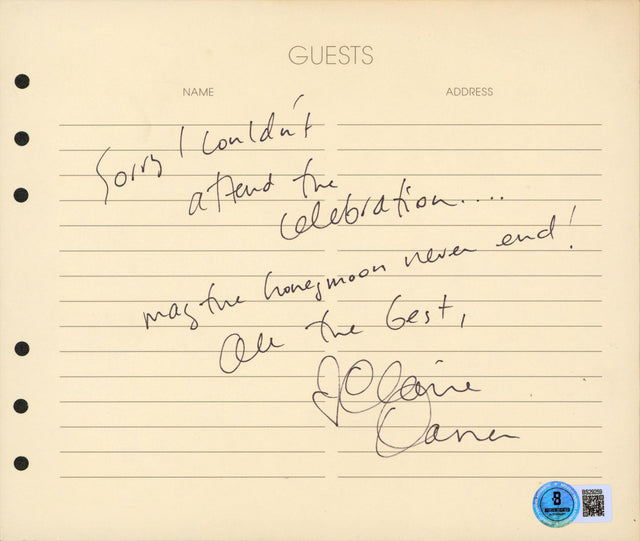 GUESTS
NAME ADDRESS
Sorry I couldn't
attend the
celebration....
may the honeymoon never end!
All the best,
Elaine
B
AUTHENTICATED
BS29259